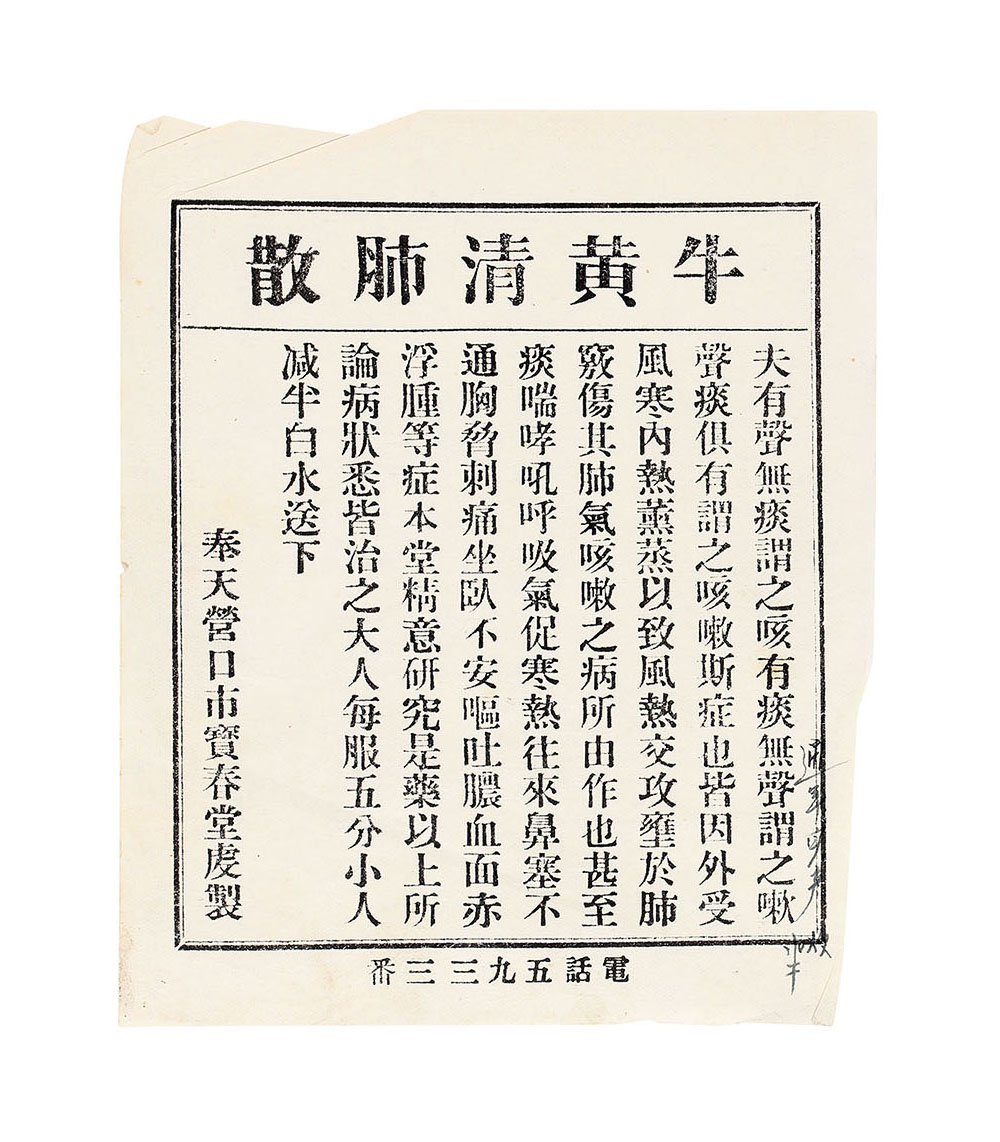 牛黃清肺散
夫有聲無痰謂之咳有痰無聲謂之嗽
聲痰俱有謂之咳嗽斯症也皆因外受
風寒內熱薰蒸以致風熱交攻壅於肺
竅傷其肺氣咳嗽之病所由作也甚至
痰喘哮吼呼吸氣促寒熱往來鼻塞不
通胸脅刺痛坐臥不安嘔吐膿血面赤
浮腫等症本堂精意研究是藥以上所
論病狀悉皆治之大人每服五分小人
减半白水送下
奉天營口市寶春堂虔製
電話五九三三番